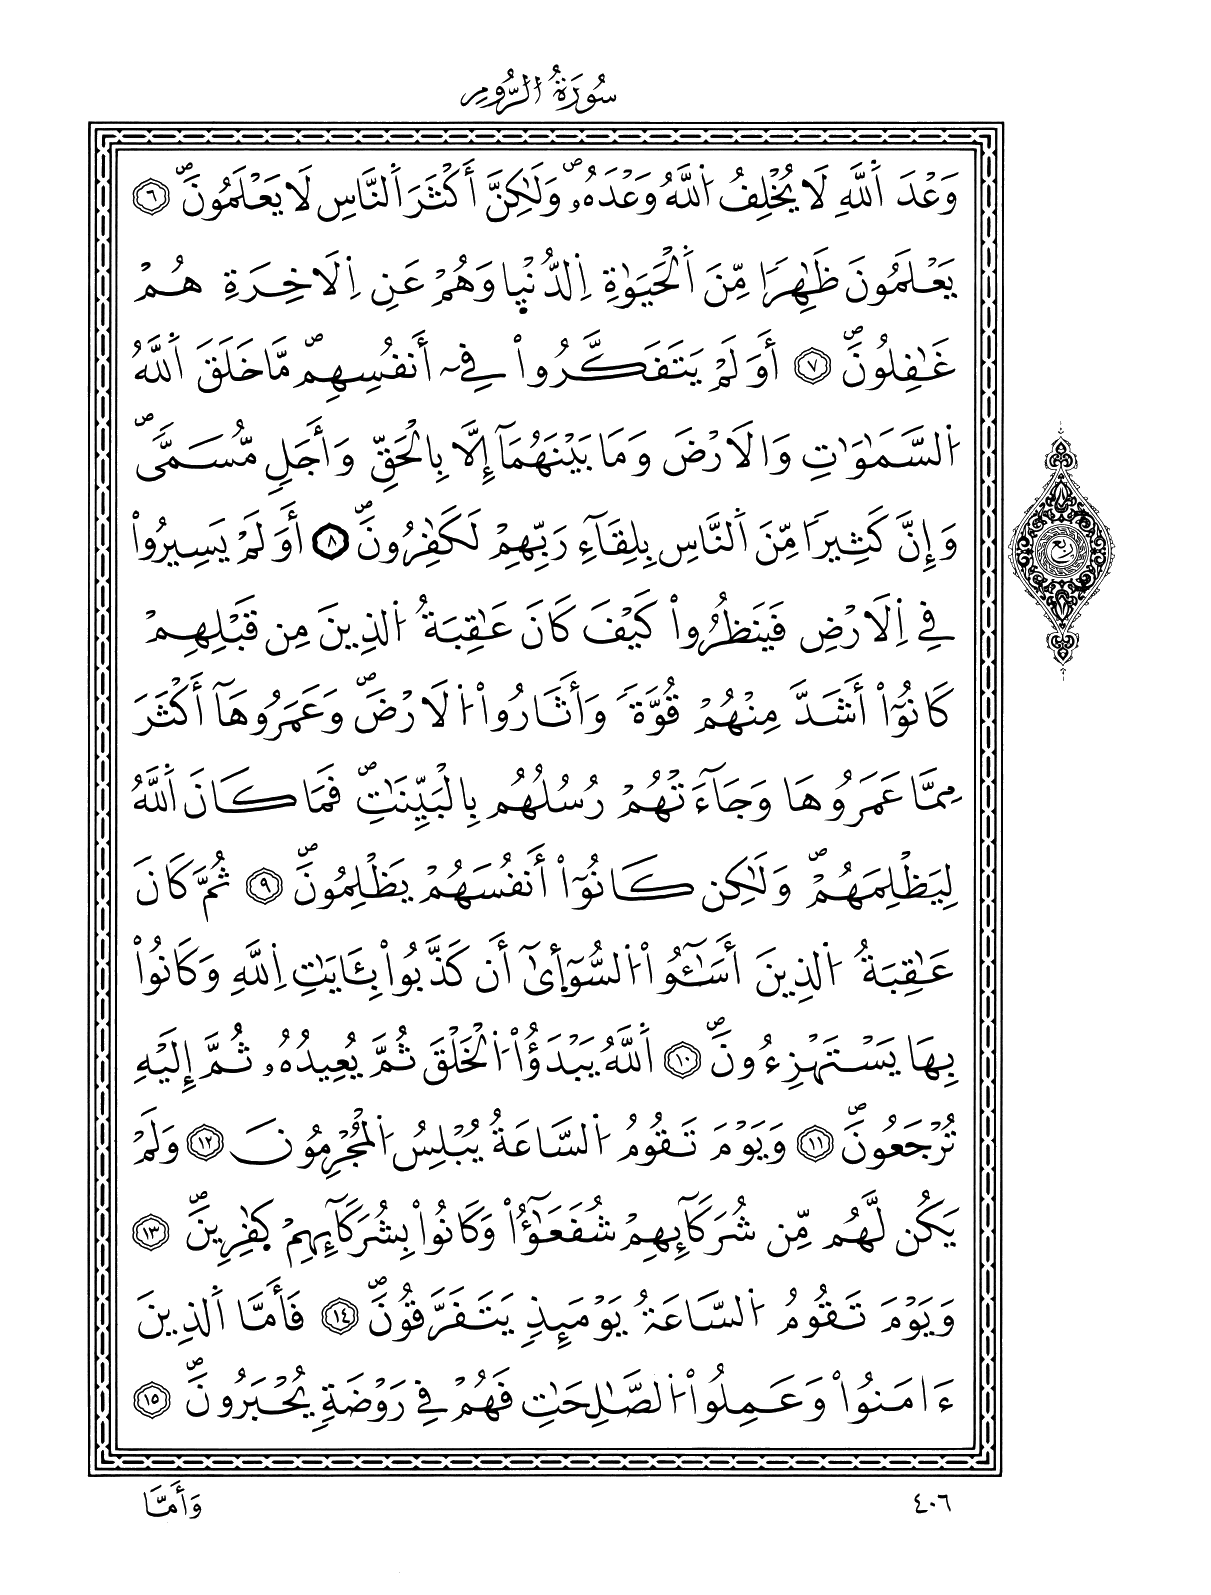 سُورَةُ الرُّومِ
وَعْدَ اَللَّهِ لَا يُخْلِفُ اُللَّهُ وَعْدَهُۥۖ وَلَٰكِنَّ أَكْثَرَ اَلنَّاسِ لَا يَعْلَمُونَۖ ٦
يَعْلَمُونَ ظَٰهِراٗ مِّنَ اَلْحَيَوٰةِ اِلدُّنْيٜا وَهُمْ عَنِ اِلَاخِرَةِ هُمْ
غَٰفِلُونَۖ ٧ أَوَلَمْ يَتَفَكَّرُواْ فِےٓ أَنفُسِهِمۖ مَّا خَلَقَ اَللَّهُ
اُلسَّمَٰوَٰتِ وَالَارْضَ وَمَا بَيْنَهُمَآ إِلَّا بِالْحَقِّ وَأَجَلٖ مُّسَمّيٗۖ
وَإِنَّ كَثِيراٗ مِّنَ اَلنَّاسِ بِلِقَآءِ رَبِّهِمْ لَكَٰفِرُونَۖ ٨ أَوَلَمْ يَسِيرُواْ
فِے اِلَارْضِ فَيَنظُرُواْ كَيْفَ كَانَ عَٰقِبَةُ اُلذِينَ مِن قَبْلِهِمْ
كَانُوٓاْ أَشَدَّ مِنْهُمْ قُوَّةٗ وَأَثَارُواْ اُلَارْضَۖ وَعَمَرُوهَآ أَكْثَرَ
مِمَّا عَمَرُوهَا وَجَآءَتْهُمْ رُسُلُهُم بِالْبَيِّنَٰتِۖ فَمَا كَانَ اَللَّهُ
لِيَظْلِمَهُمْۖ وَلَٰكِن كَانُوٓاْ أَنفُسَهُمْ يَظْلِمُونَۖ ٩ ثُمَّ كَانَ
عَٰقِبَةُ اُلذِينَ أَسَٰٓـُٔواْ اُلسُّوٓأ۪يٰٓ أَن كَذَّبُواْ بِـَٔايَٰتِ اِللَّهِ وَكَانُواْ
بِهَا يَسْتَهْزِءُونَۖ ١٠ اَللَّهُ يَبْدَؤُاْ اُلْخَلْقَ ثُمَّ يُعِيدُهُۥ ثُمَّ إِلَيْهِ
تُرْجَعُونَۖ ١١ وَيَوْمَ تَقُومُ اُلسَّاعَةُ يُبْلِسُ اُلْمُجْرِمُونَ ١٢ وَلَمْ
يَكُن لَّهُم مِّن شُرَكَآئِهِمْ شُفَعَٰٓؤُاْ وَكَانُواْ بِشُرَكَآئِهِمْ كٰ۪فِرِينَۖ ١٣
وَيَوْمَ تَقُومُ اُلسَّاعَةُ يَوْمَئِذٖ يَتَفَرَّقُونَۖ ١٤ فَأَمَّا اَلذِينَ
ءَامَنُواْ وَعَمِلُواْ اُلصَّٰلِحَٰتِ فَهُمْ فِے رَوْضَةٖ يُحْبَرُونَۖ ١٥
ربع
وَأَمَّا
٤٠٦